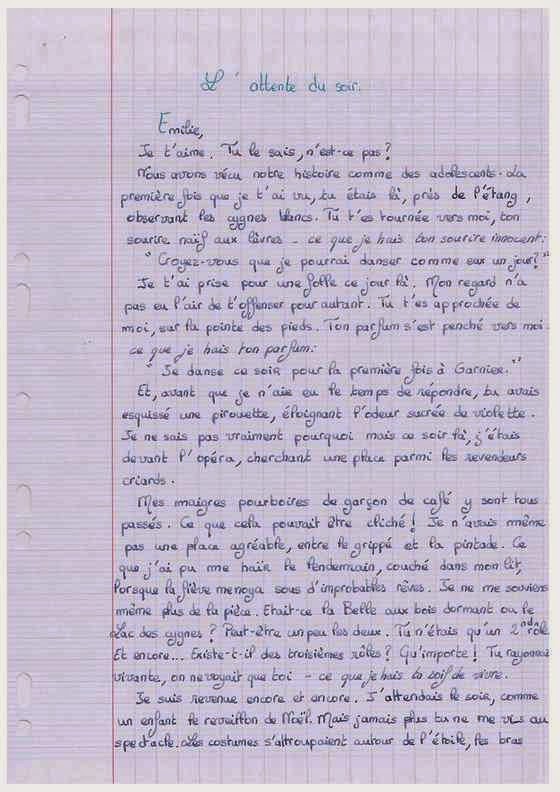 L'attente du soir.
Emilie,
Je t'aime. Tu le sais, n'est-ce pas?
Nous avons vécu notre histoire comme des adolescents. La
première fois que je t'ai vu, tu étais là, près de l'étang,
observant les cygnes blancs. Tu t'es tournée vers moi, ton
sourire naïf aux lèvres - ce que je hais ton sourire innocent:
"Croyez-vous que je pourrai danser comme eux un jour?"
Je t'ai prise pour une folle ce jour là. Mon regard n'a
pas eu l'air de t'offenser pour autant. Tu t'es approchée de
moi, sur la pointe des pieds. Ton parfum s'est penché vers moi
ce que je hais ton parfum:
"Je danse ce soir pour la première fois à Garnier."
Et, avant que je n'aie eu le temps de répondre, tu avais
esquissé une pirouette, éloignant l'odeur sucrée de violette.
Je ne sais pas vraiment pourquoi mais ce soir là, j'étais
devant l'opéra, cherchant une place parmi les revendeurs
criards.
Mes maigres pourboires de garçon de café y sont tous
passés. Ce que cela pouvait être cliché! Je n'avais même
pas une place agréable, entre le grippé et la pintade. Ce
que j'ai pu me haïr le lendemain, couché dans mon lit,
lorsque la fièvre me noya sous d'improbables rêves. Je ne me souviens
même plus de la pièce. Etait-ce la Belle aux bois dormant ou le
Lac des cygnes? Peut-être un peu les deux. Tu n'étais qu'un 2nd rôle
Et encore... Existe-t-il des troisièmes rôles? Qu'importe! Tu rayonnais
vivante, on ne voyait que toi - ce que je hais ta soif de vivre.
Je suis revenue encore et encore. J'attendais le soir, comme
un enfant le reveillon de Noël. Mais jamais plus tu ne me vis au
spectacle. Les costumes s'attroupaient autour de l'étoile, les bras